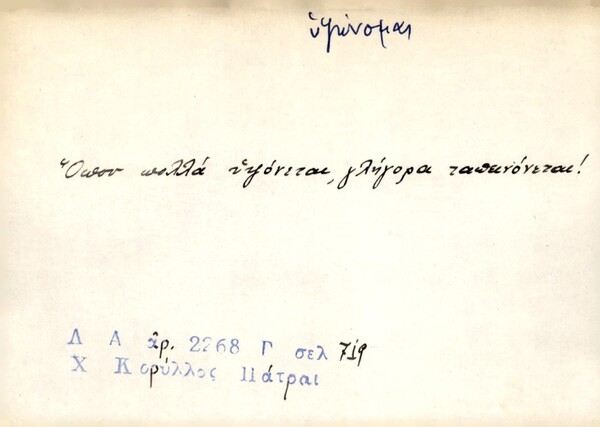 ὑψώνομαι
Ὅπου πολλά ὑψόνεται, γλήγορα ταπεινόνεται!
Λ Α ἀρ. 2268 Γ σελ 719
Χ Κορύλλος Πάτραι